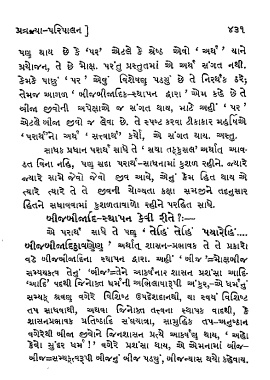 પ્રવ્રજ્યા-પરિપાલન ]	૪૩૧
પણ થાય છે કે 'પર' એટલે કે શ્રેષ્ઠ એવો 'અર્થ' યાને
પ્રયોજન, તે છે મોક્ષ. પરંતુ પ્રસ્તુતમાં એ અર્થ સંગત નથી.
કેમકે પાછું 'પર' એવું વિશેષણ પડ્યું છે તે નિરર્થક ઠરે;
તેમજ આગળ 'બીજબીજાદિ-સ્થાપન દ્વારા' એમ કહે છે તે
બીજા જીવોની અપેક્ષાએ જ સંગત થાય, માટે અહીં 'પર'
એટલે બીજા જીવો જ લેવા છે. તે સ્પષ્ટ કરવા ટીકાકાર મહર્ષિએ
'પરાર્થ'નો અર્થ 'સત્ત્વાર્થ' કર્યો, એ સંગત થાય. અસ્તુ.
સાધક પ્રધાન પરાર્થ સાધે તે 'સયા તક્કુસલે' અર્થાત્ આવ-
ડત વિના નહિ, પણ સદા પરાર્થ-સાધનામાં કુશળ રહીને. જ્યારે
જ્યારે સામે જેવો જેવો જીવ આવે, એનું કેમ હિત થાય એ
ત્યારે ત્યારે તે તે જીવની યોગ્યતા કક્ષા સમજીને તદનુસાર
હિતને સધાવવામાં કુશળતાવાળો રહીને પરહિત સાધે.
બીજબીજાદિ-સ્થાપન કેવી રીતે?:—
એ પરાર્થ સાધે તે પણ 'તેહિં તેહિં પયારેહિં....
બીજબીજાદિઠાવણેણં' અર્થાત્ શાસન-પ્રભાવક તે તે પ્રકારો
વડે બીજબીજાદિના સ્થાપન દ્વારા. અહીં 'બીજ'=મોક્ષબીજ
સમ્યક્ત્વ તેનું 'બીજ'=તેને આકર્ષનાર શાસન પ્રશંસા આદિ-
'આદિ' પદથી જિનોક્ત ધર્મની અભિલાષારૂપી અંકુર,-એ ધર્મનું
સમ્યક્ શ્રવણ વગેરે વિશિષ્ટ ઉપદેશદાનથી, વા સ્વયં વિશિષ્ટ
તપ સાધવાથી, અથવા જિનોક્ત તત્ત્વના સ્થાપક વાદથી, કે
શાસનપ્રભાવક પ્રતિષ્ઠાદિ સધાવવા, સામૂહિક તપ-અનુષ્ઠાન
વગેરેથી બીજા જીવોને જિનશાસન પ્રત્યે આકર્ષણ થાય, 'અહો!
કેવો સુંદર ધર્મ!' એવી પ્રશંસા વગેરે થાય, એ એમનામાં બીજ-
બીજ=સમ્યક્ત્વરૂપી બીજનું બીજ પડ્યું, બીજન્યાસ થયો કહેવાય.